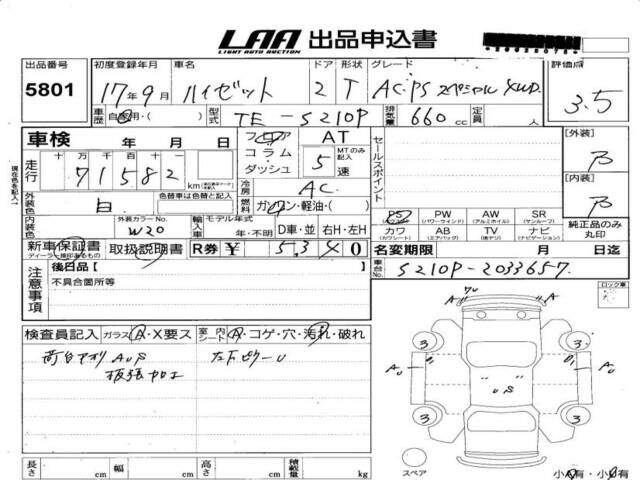 LAA 出品申込書
LIGHT AUTO AUCTION
出品番号 初度登録年月 車名 ドア 形状 グレード 評価点
5801 17年9月 ハイゼット 2 T AC・PS スペシャル 4WD 3.5
車歴 自家用・( ) 型式 TE-S210P 排気量 660cc 定員 人
車検 年 月 日 フロア コラム ダッシュ AT MTのみ記入 5速
走行 十 万 千 百 十 一
71582 km
冷房 AC
セールスポイント
[外装] B
[内装] B
現在色を記入
外装色 白 色替車は色替と記入 燃料 ガソリン・軽油・( )
外装カラーNo. W20 輸入車 モデル年式 年・不明 D車・並 右H・左H
PS (パワステ) PW (パワーウインド) AW (アルミホイル) SR (サンルーフ)
カワ (カワシート) AB (エアバッグ) TV (後デジ) ナビ (ナビゲーション)
純正品のみ丸印
新車保証書 取扱説明書 R券 ¥ 5340
名変期限 月 日迄
車台No. S210P-2033657
注意事項
後日品 [ ]
不具合箇所等
ロック車
検査員記入 ガラス A・X要ス 室内 シート A・コゲ・穴・汚れ・破れ
荷台アオリ AUS
板張加工
左下ピラーU
7U
A
A
3
3
AU
B1
B1
AU
US
3
3
スペア
小A有・小U有
長さ cm 幅 cm 高さ cm 積載量 kg